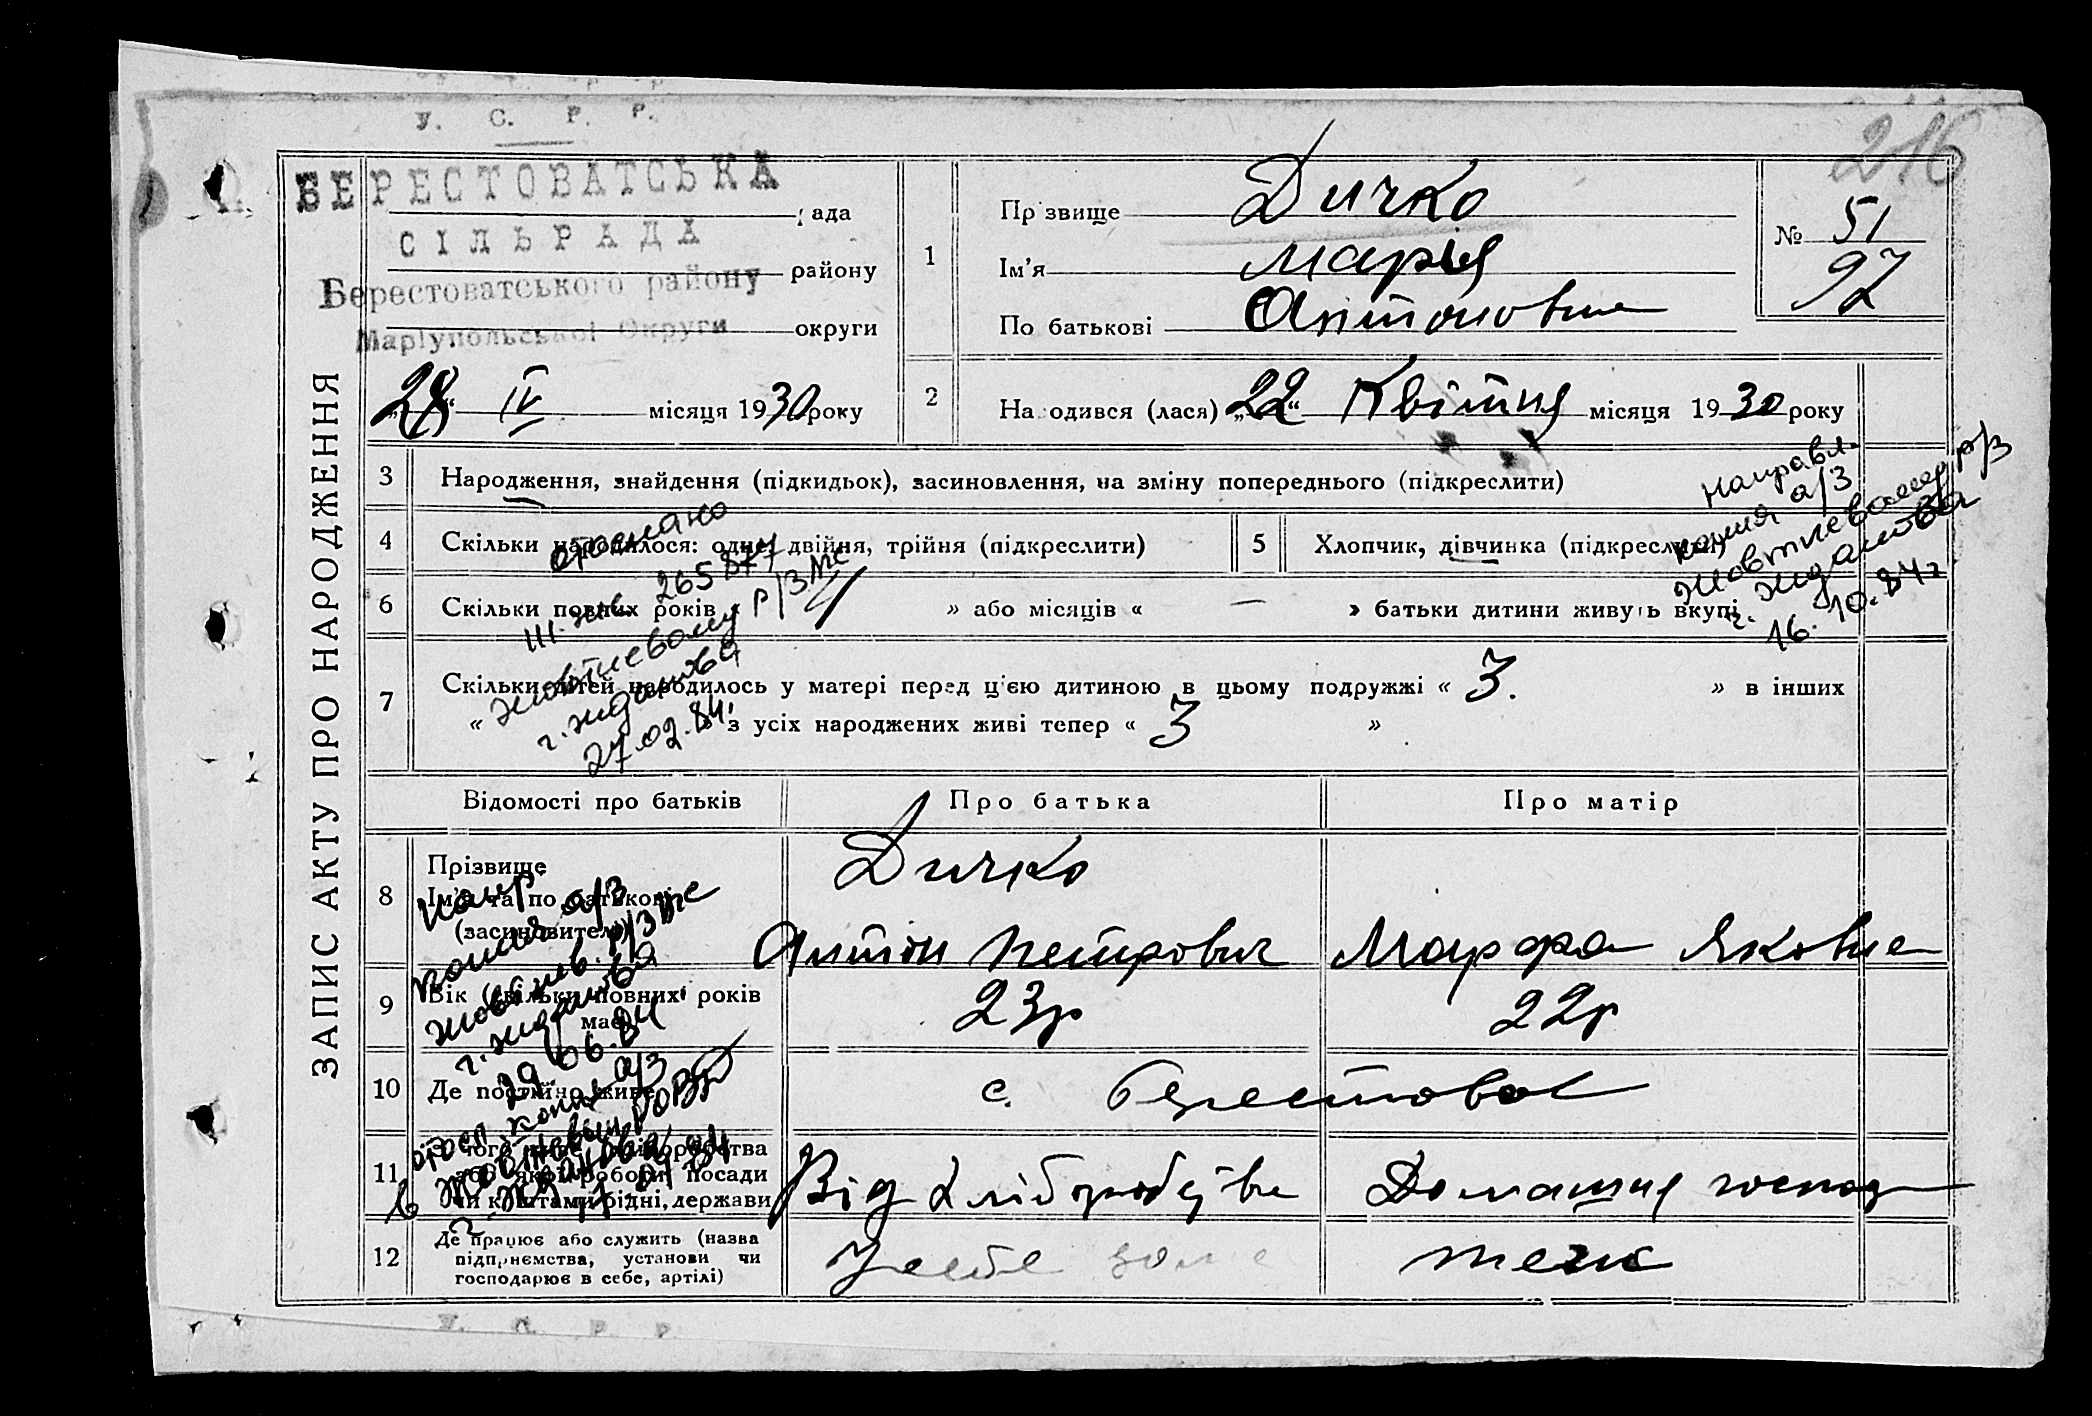 216
У. С. Р. Р.
БЕРЕСТОВАТСЬКА
рада
СІЛЬРАДА
району
Берестоватського району
округи
Маріупольської Округи
28 IV місяця 1930 року
1
Прізвище Дичко
Ім'я Марія
По батькові Антоновна
№ 51
97
2 Народився (лася) „22“ Квітня місяця 1930 року
ЗАПИС АКТУ ПРО НАРОДЖЕННЯ
3 Народження, знайдення (підкидьок), засиновлення, на зміну попереднього (підкреслити)
4 Скільки народилося: одне, двійня, трійня (підкреслити)
5 Хлопчик, дівчинка (підкреслити)
6 Скільки повних років « 4 » або місяців « — » батьки дитини живуть вкупі
7 Скільки дітей народилось у матері перед ц'єю дитиною в цьому подружжі « 3. » в інших
« » з усіх народжених живі тепер « 3 »
265877
Жовтневому р/ЗАГС
г. Жданова
27.02.84.
Направл.
копия а/з
Жовтневому р/З
г. Жданова
16.10.84г.
Відомості про батьків
Про батька
Про матір
8 Прізвище
Ім'я та по батькові
(засиновителів)
Дичко
Антон Петрович
Марфа Яковна
9 Вік (скільки повних років має)
23р
22р
10 Де постійно живе
с. Берестовое
11 З чого живе: хліборобства або якої роботи, посади чи коштами рідні, держави
Від Хліборобства
Домашня господ
12 Де працює або служить (назва
підприємства, установи чи
господарює в себе, артілі)
У себе дома
теж
Напр.
копия а/з
Жовтнев. р/ЗАГС
г. Жданова
29.06.84
копия а/з
г. Жданова
У. С. Р. Р.